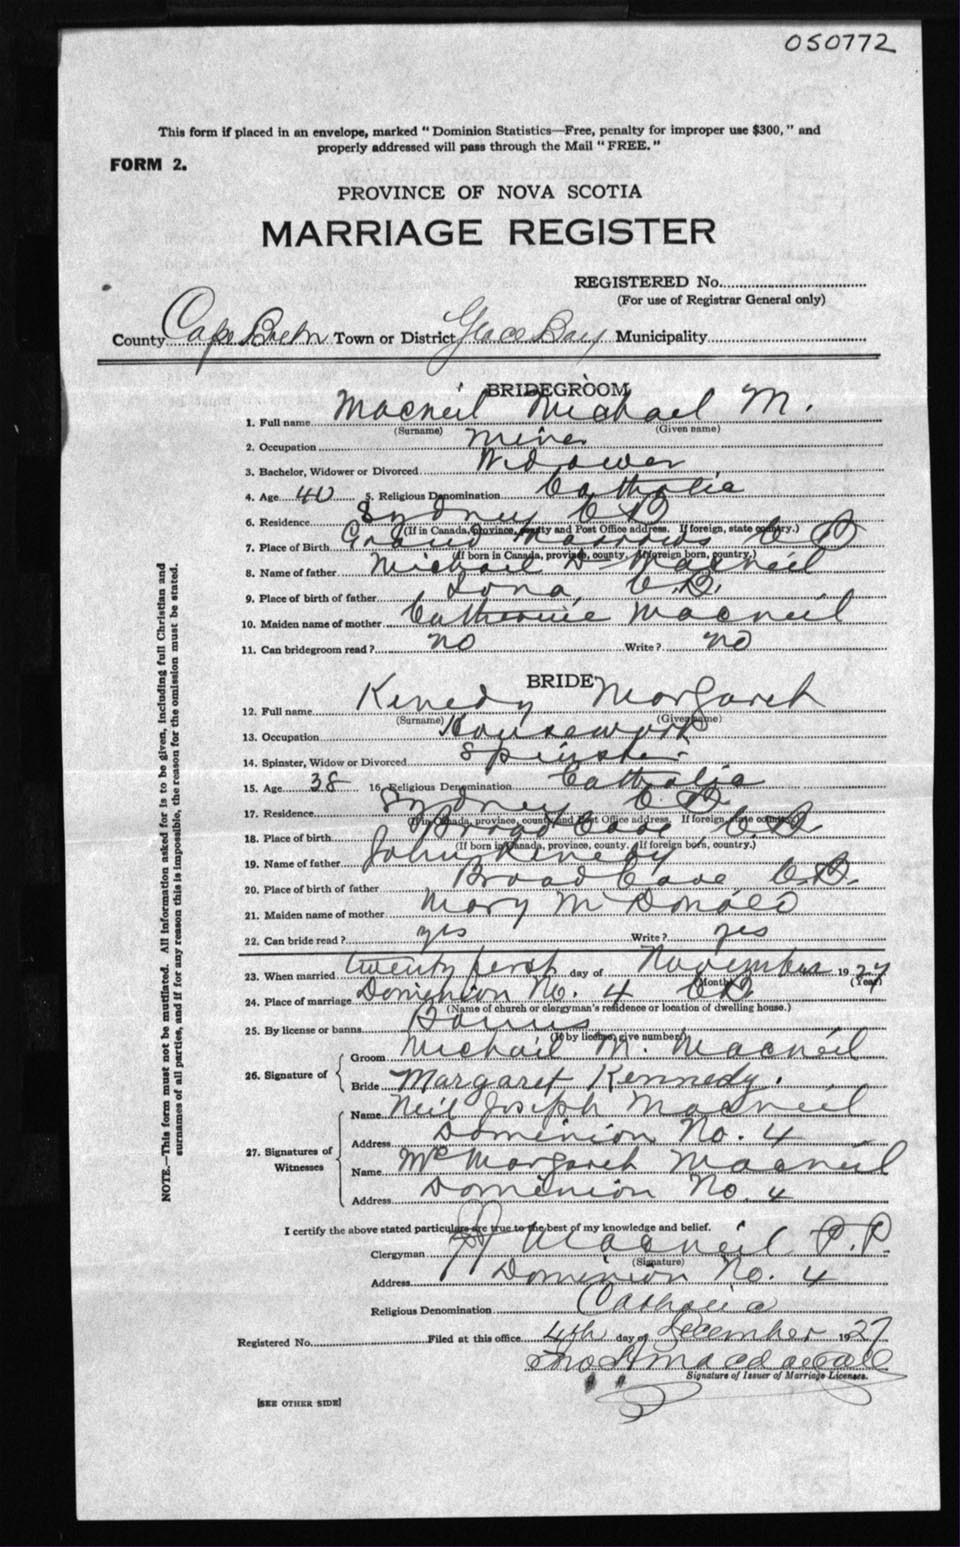 050772
This form if placed in an envelope, marked "Dominion Statistics—Free, penalty for improper use $300," and
properly addressed will pass through the Mail "FREE."
FORM 2.
PROVINCE OF NOVA SCOTIA
MARRIAGE REGISTER
REGISTERED No.
(For use of Registrar General only)
County Cape Breton Town or District Glace Bay Municipality
BRIDEGROOM
1. Full name Macneil Michael M.
(Surname) (Given name)
2. Occupation Miner
3. Bachelor, Widower or Divorced Widower
4. Age 40 5. Religious Denomination Catholic
6. Residence Sydney C B
(If in Canada, province, county and Post Office address. If foreign, state country.)
7. Place of Birth Grand Narrows C B
(If born in Canada, province, county. If foreign born, country.)
8. Name of father Michael D Macneil
9. Place of birth of father Iona, C.B.
10. Maiden name of mother Catherine Macneil
11. Can bridegroom read? no Write? no
BRIDE
12. Full name Kenedy Margaret
(Surname) (Given name)
13. Occupation Housework
14. Spinster, Widow or Divorced Spinster
15. Age 38 16. Religious Denomination Catholic
17. Residence Sydney C. B.
(If in Canada, province, county and Post Office address. If foreign, state country.)
18. Place of birth Broad Cove C.B.
(If born in Canada, province, county. If foreign born, country.)
19. Name of father John Kenedy
20. Place of birth of father Broad Cove C.B.
21. Maiden name of mother Mary McDonald
22. Can bride read? yes Write? yes
23. When married twenty first day of November 1927
(Month) (Year)
24. Place of marriage Dominion No. 4 C B
(Name of church or clergyman's residence or location of dwelling house.)
25. By license or banns Banns
(If by license, give number)
26. Signature of
Groom Michael M. Macneil
Bride Margaret Kennedy.
27. Signatures of Witnesses
Name Neil Joseph Macneil
Address Dominion No. 4
Name Margaret Macneil
Address Dominion No. 4
I certify the above stated particulars are true to the best of my knowledge and belief.
Clergyman Macneil P.P.
(Signature)
Address Dominion No. 4
Religious Denomination Catholic
Registered No. Filed at this office 4th day of December 1927
Signature of Issuer of Marriage Licenses.
[SEE OTHER SIDE]
NOTE.—This form must not be mutilated. All information asked for is to be given, including full Christian and
surnames of all parties, and if for any reason this is impossible, the reason for the omission must be stated.